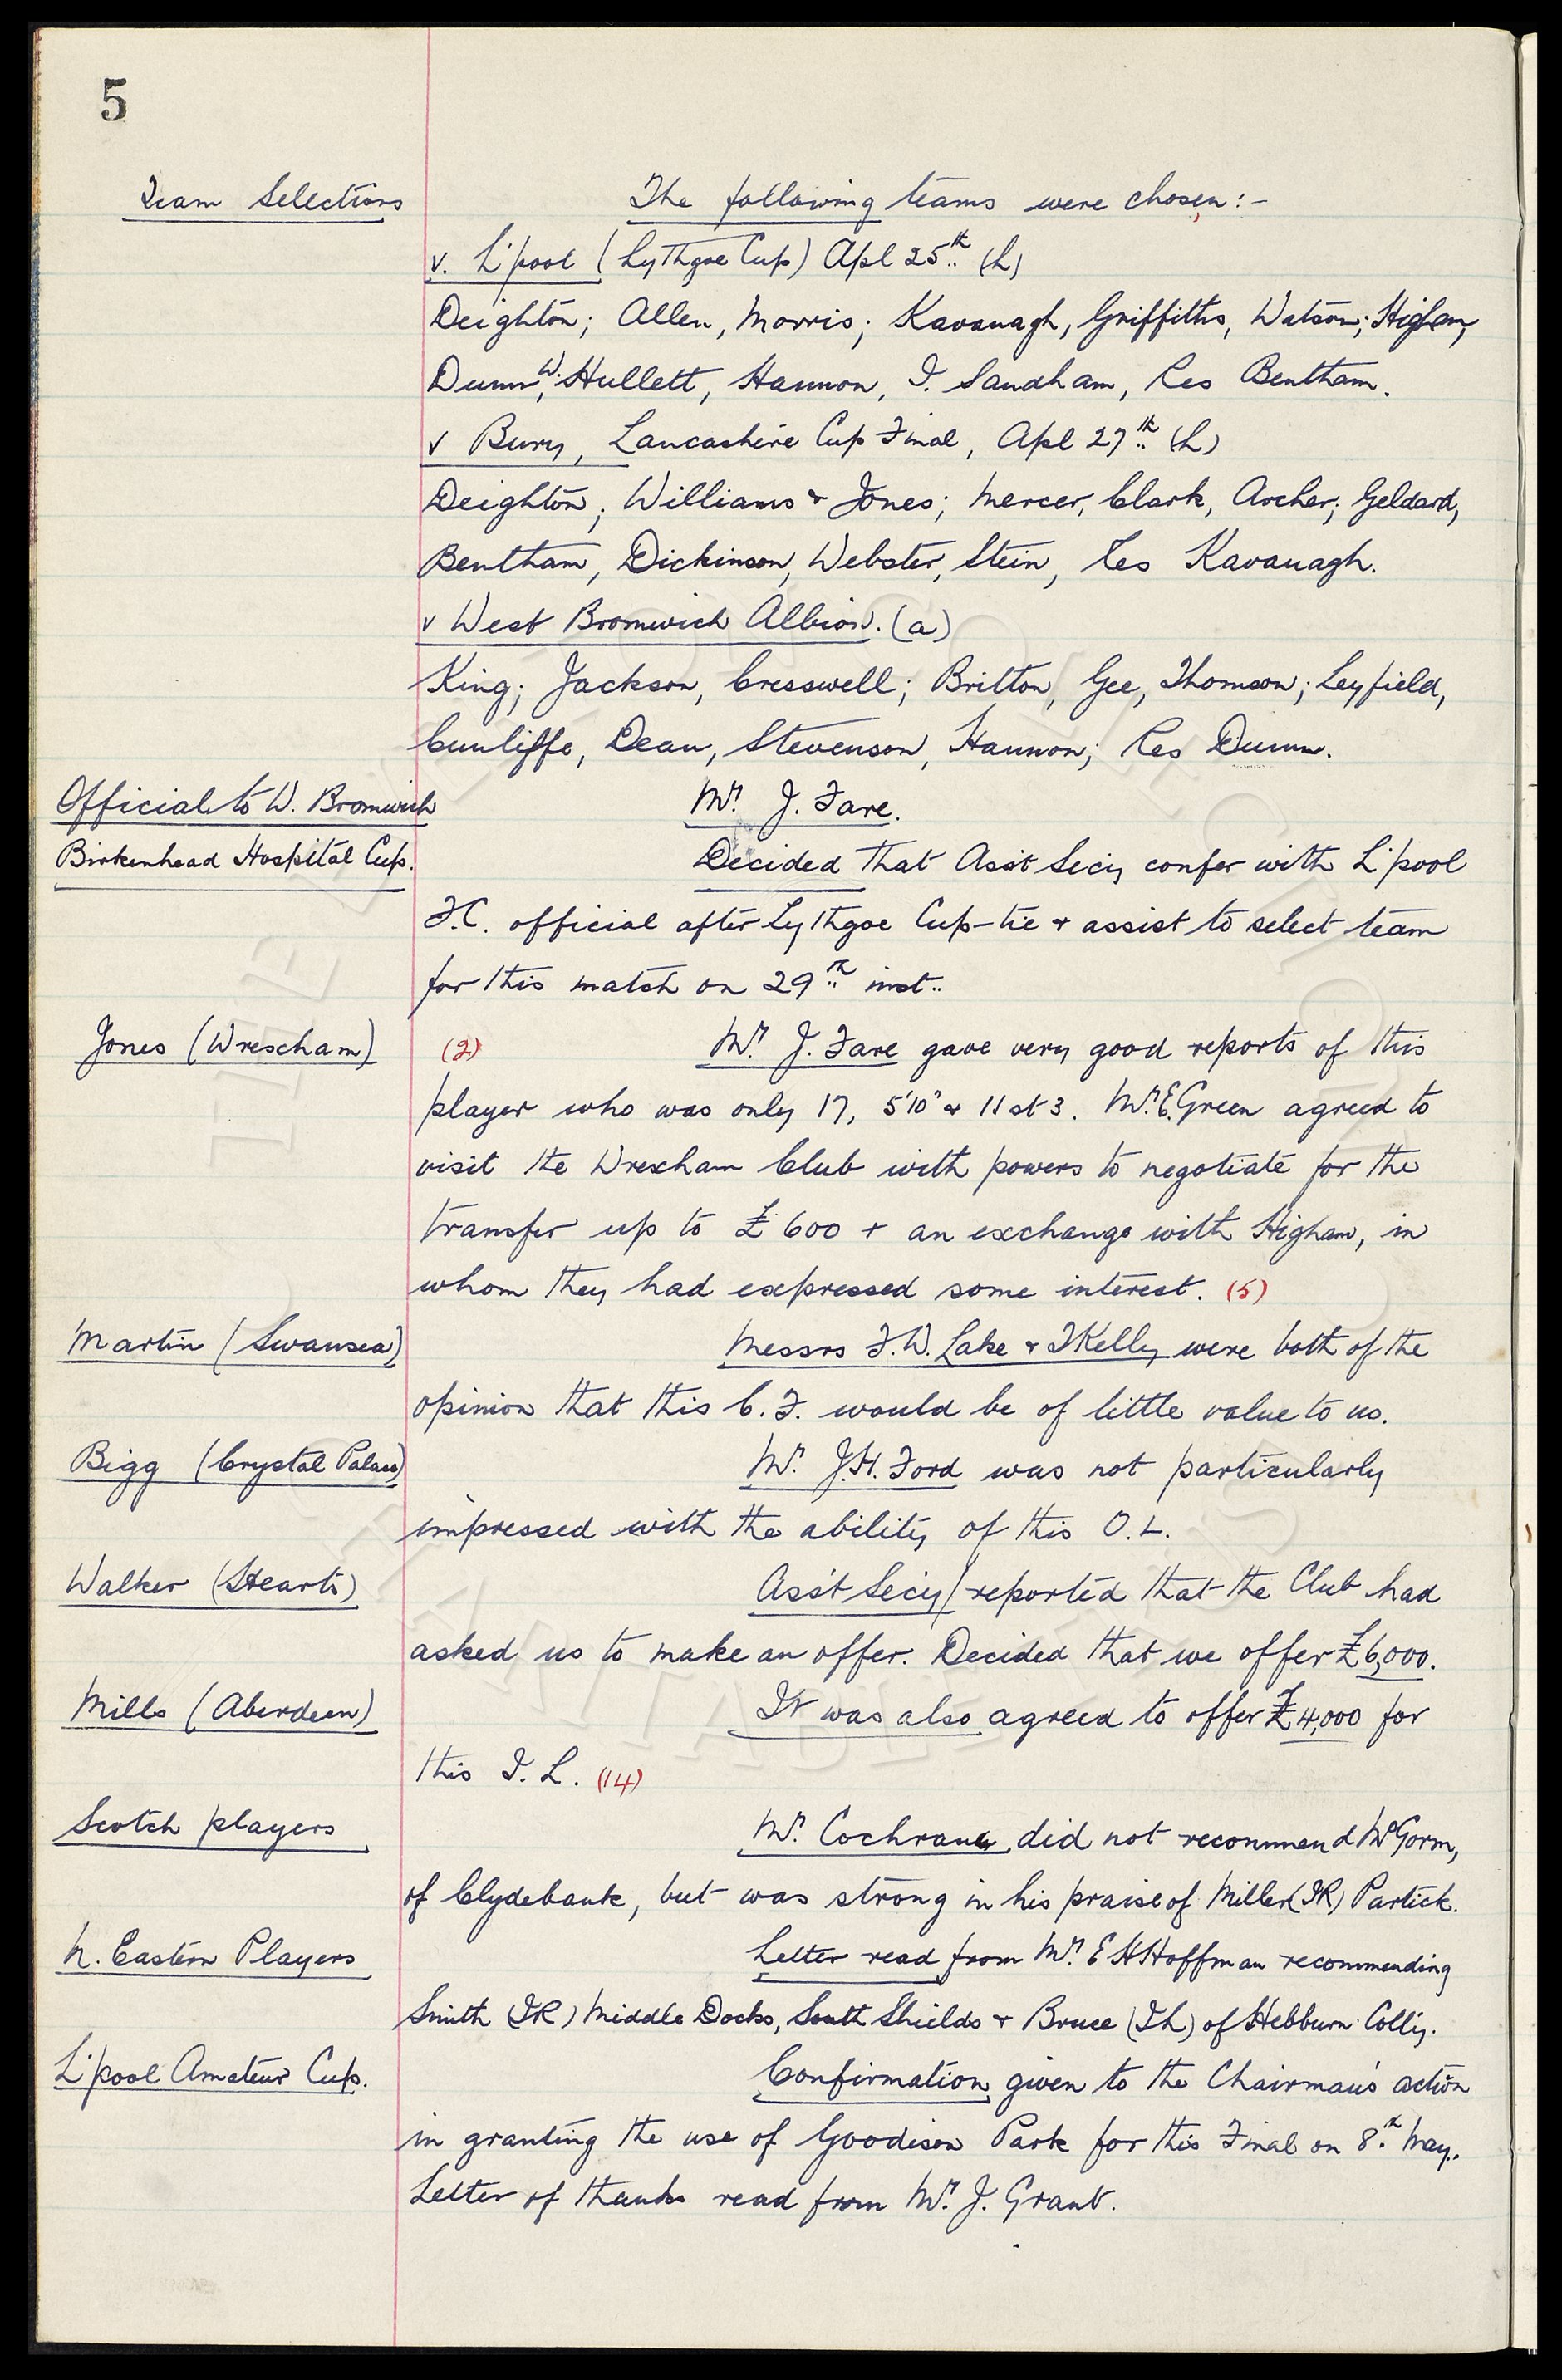 5
Team Selections The following teams were chosen:-
v. L'pool (Lythgoe Cup) Apl 25th (h)
Deighton; Allen, Morris; Kavanagh, Griffiths, Watson; Higham,
Dunn, W. Hullett, Hannon, I. Sandham, Res Bentham.
v Bury, Lancashire Cup Final, Apl 27th (h)
Deighton; Williams & Jones; Mercer, Clark, Archer; Geldard,
Bentham, Dickinson, Webster, Stein, Res Kavanagh.
v West Bromwich Albion. (a)
King; Jackson, Cresswell; Britton, Gee, Thomson; Leyfield,
Cunliffe, Dean, Stevenson, Hannon; Res Dunn.
Official to W. Bromwich Mr. J. Fare.
Birkenhead Hospital Cup. Decided that Ass't Secy confer with L'pool
F.C. official after Lythgoe Cup-tie & assist to select team
for this match on 29th inst..
Jones (Wrexham) (2) Mr. J. Fare gave very good reports of this
player who was only 17, 5'10" & 11st 3. Mr. E. Green agreed to
visit the Wrexham Club with powers to negotiate for the
transfer up to £600 + an exchange with Higham, in
whom they had expressed some interest. (5)
Martin (Swansea) Messrs F.W. Lake & T Kelly were both of the
opinion that this C.F. would be of little value to us.
Bigg (Crystal Palace) Mr. J.H. Ford was not particularly
impressed with the ability of this O.L.
Walker (Hearts) Ass't Secy/ reported that the Club had
asked us to make an offer. Decided that we offer £6,000.
Mills (Aberdeen) It was also agreed to offer £4,000 for
this I.L. (14)
Scotch players Mr. Cochrane did not recommend McGorm,
of Clydebank, but was strong in his praise of Miller (IR) Partick.
N. Eastern Players Letter read from Mr. E H Hoffman recommending
Smith (IR) Middle Docks, South Shields & Bruce (Ih) of Hebburn Colly.
L'pool Amateur Cup. Confirmation given to the Chairman's action
in granting the use of Goodison Park for this Final on 8th May.
Letter of thanks read from Mr. J. Grant.